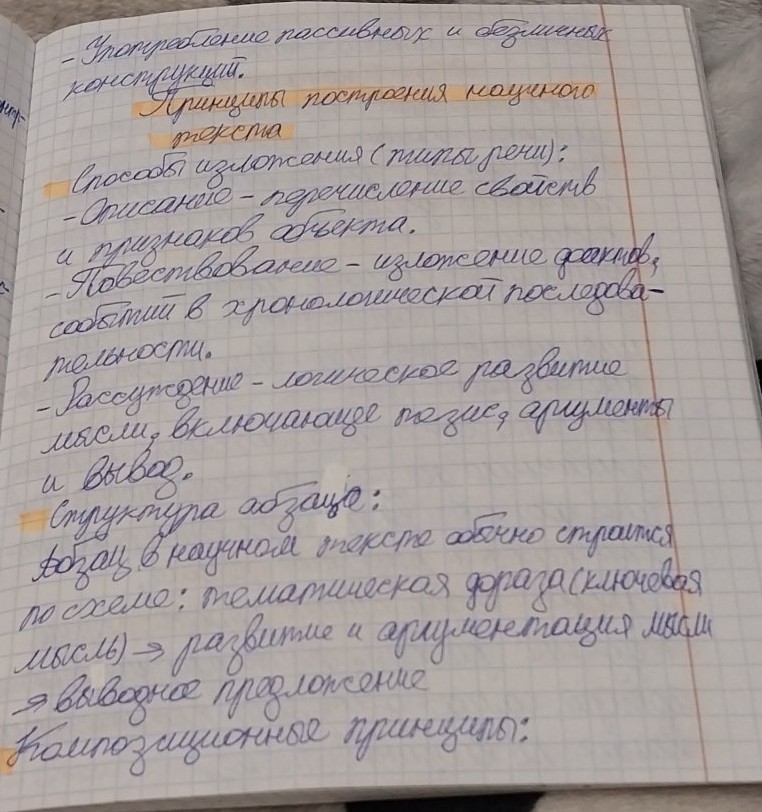 - Употребление пассивных и безличных
конструкций.
Принципы построения научного
текста
Способы изложения (типы речи):
- Описание - перечисление свойств
и признаков объекта.
- Повествование - изложение фактов,
событий в хронологической последова-
тельности.
- Рассуждение - логическое развитие
мысли, включающее тезис, аргументы
и вывод.
Структура абзаца:
Абзац в научном тексте обычно строится
по схеме: тематическая фраза (ключевая
мысль) → развитие и аргументация мысли
→ выводное предложение
Композиционные принципы: